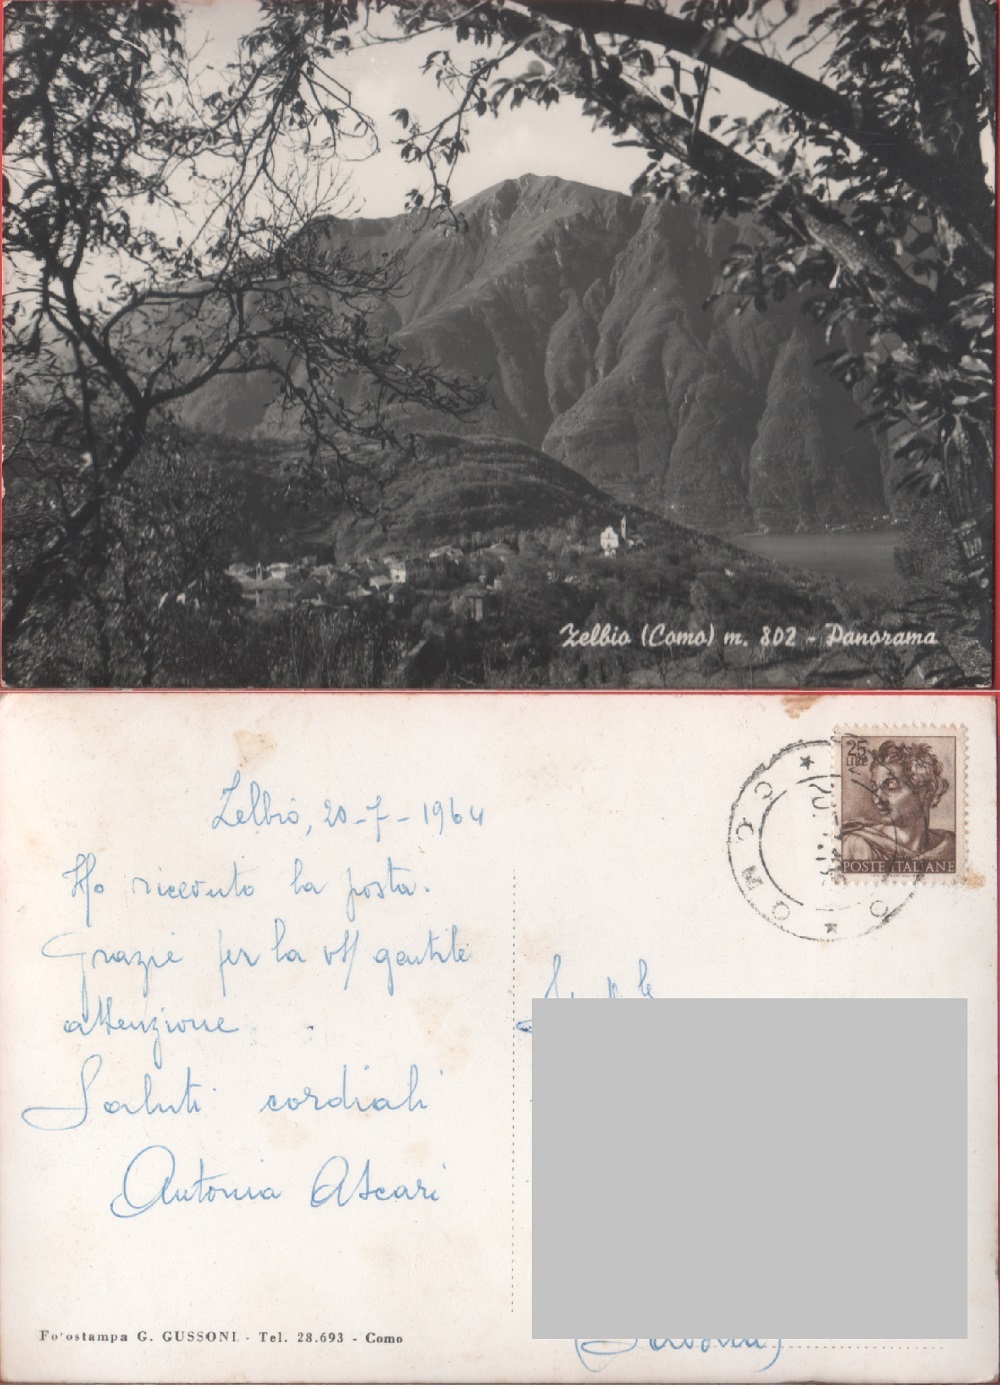 Zelbio (Como) m. 802 - Panorama
Zelbio, 20-7-1964
Ho ricevuto la posta.
Grazie per la vs/ gentile
attenzione.
Saluti cordiali
Antonia Ascari
Fotostampa G. GUSSONI - Tel. 28.693 - Como
25
LIRE
POSTE ITALIANE
COMO
(Savona)